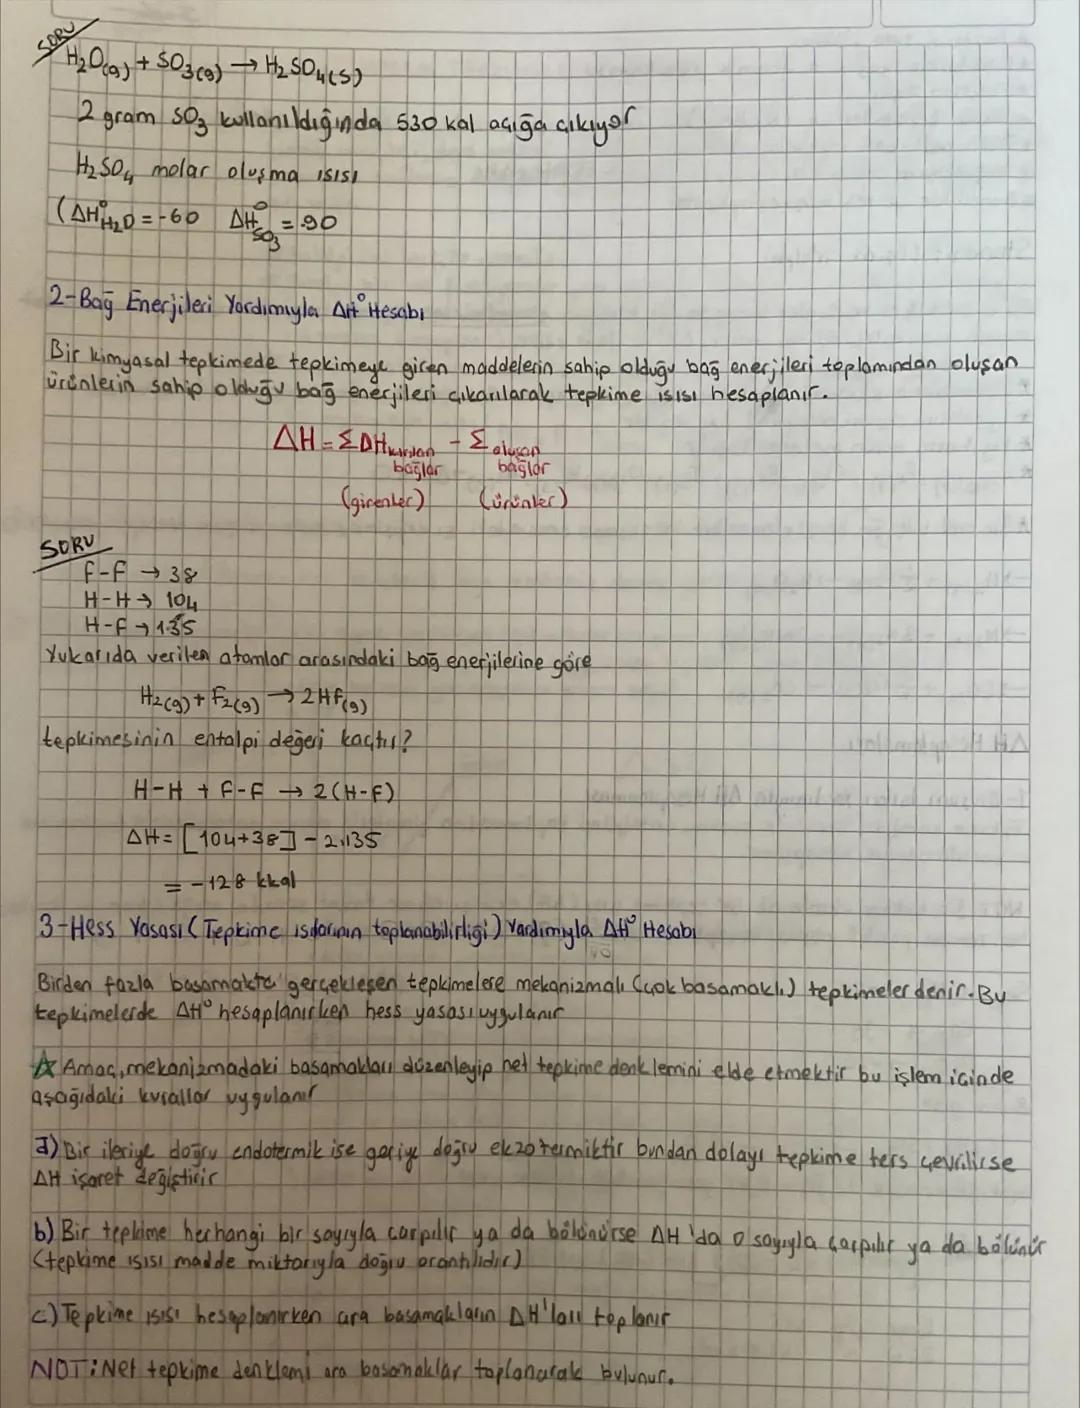 SORU
H₂O(g) + SO₃(g) → H₂SO₄(s)
2 gram SO₃ kullanıldığında 530 kal açığa çıkıyor
H₂SO₄ molar oluşma ısısı
(ΔH°H₂O = -60 ΔH°SO₃ = -90
2-Bağ Enerjileri Yardımıyla ΔH° Hesabı
Bir kimyasal tepkimede tepkimeye giren maddelerin sahip olduğu bağ enerjileri toplamından oluşan
ürünlerin sahip olduğu bağ enerjileri çıkarılarak tepkime ısısı hesaplanır.
ΔH = ΣΔHkırılan - Σoluşan
bağlar bağlar
(girenler) (ürünler)
SORU
F-F → 38
H-H → 104
H-F → 135
Yukarıda verilen atomlar arasındaki bağ enerjilerine göre
H₂(g) + F₂(g) → 2HF(g)
tepkimesinin entalpi değeri kaçtır?
H-H + F-F → 2(H-F)
ΔH = [104+38] - 2.135
= -128 kkal
3-Hess Yasası (Tepkime ısılarının toplanabilirliği) Yardımıyla ΔH° Hesabı
Birden fazla basamakta gerçekleşen tepkimelere mekanizmalı (çok basamaklı) tepkimeler denir. Bu
tepkimelerde ΔH° hesaplanırken hess yasası uygulanır
☆ Amaç, mekanizmadaki basamakları düzenleyip net tepkime denklemini elde etmektir bu işlem içinde
aşağıdaki kurallar uygulanır
a) Bir ileriye doğru endotermik ise geriye doğru ekzotermiktir bundan dolayı tepkime ters çevrilirse
ΔH işaret değiştirir
b) Bir tepkime herhangi bir sayıyla çarpılır ya da bölünürse ΔH'da o sayıyla çarpılır ya da bölünür
(tepkime ısısı madde miktarıyla doğru orantılıdır)
c) Tepkime ısısı hesaplanırken ara basamakların ΔH'ları toplanır
NOT: Net tepkime denklemi ara basamaklar toplanarak bulunur.